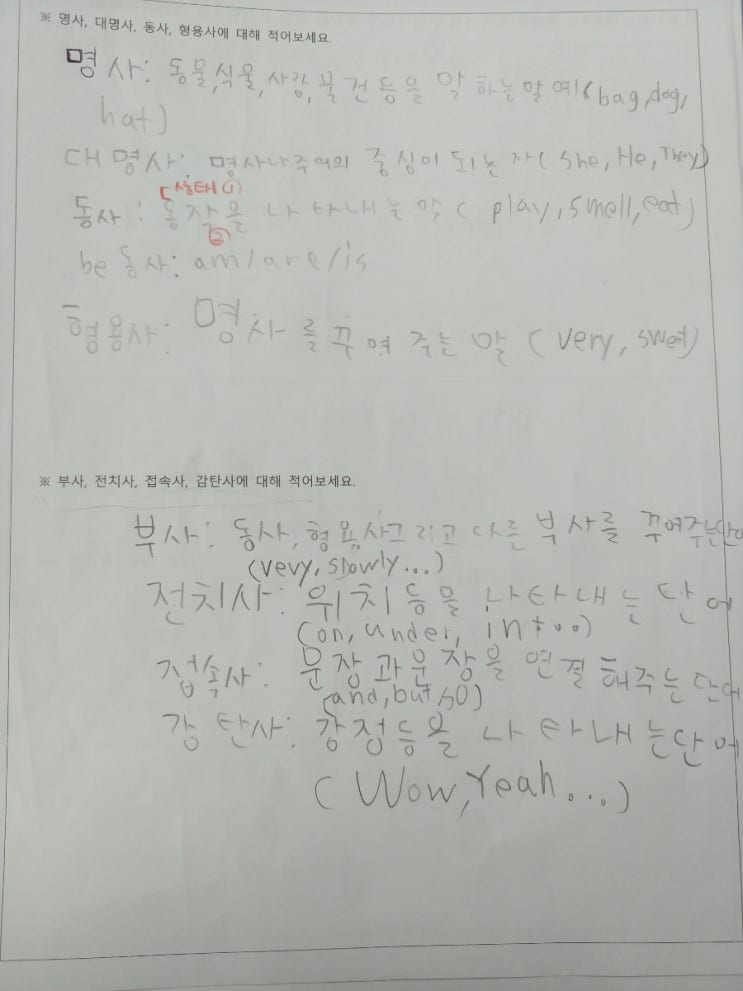 ※ 명사, 대명사, 동사, 형용사에 대해 적어보세요.
명사: 동물,식물,사랑,물건등을 말하는말 예(bag,dog,
hat)
대명사: 명사나주어의 중심이 되는 자( She, He, They)
상태 ①
동사: 동작을 나타내는 말( play, smell, eat)
②
be 동사: am/are/is
형용사: 명사를 꾸며 주는 말 (very, swet)
※ 부사, 전치사, 접속사, 감탄사에 대해 적어보세요.
부사: 동사, 형용사그리고 다른 부사를 꾸며주는단어
(very, slowly...)
전치사: 위치등을 나타내는 단어
(on, under, in
접속사: 문장과문장을 연결해주는단어
(and, but, so)
감탄사: 감정등을 나타내는단어
(Wow, Yeah...)